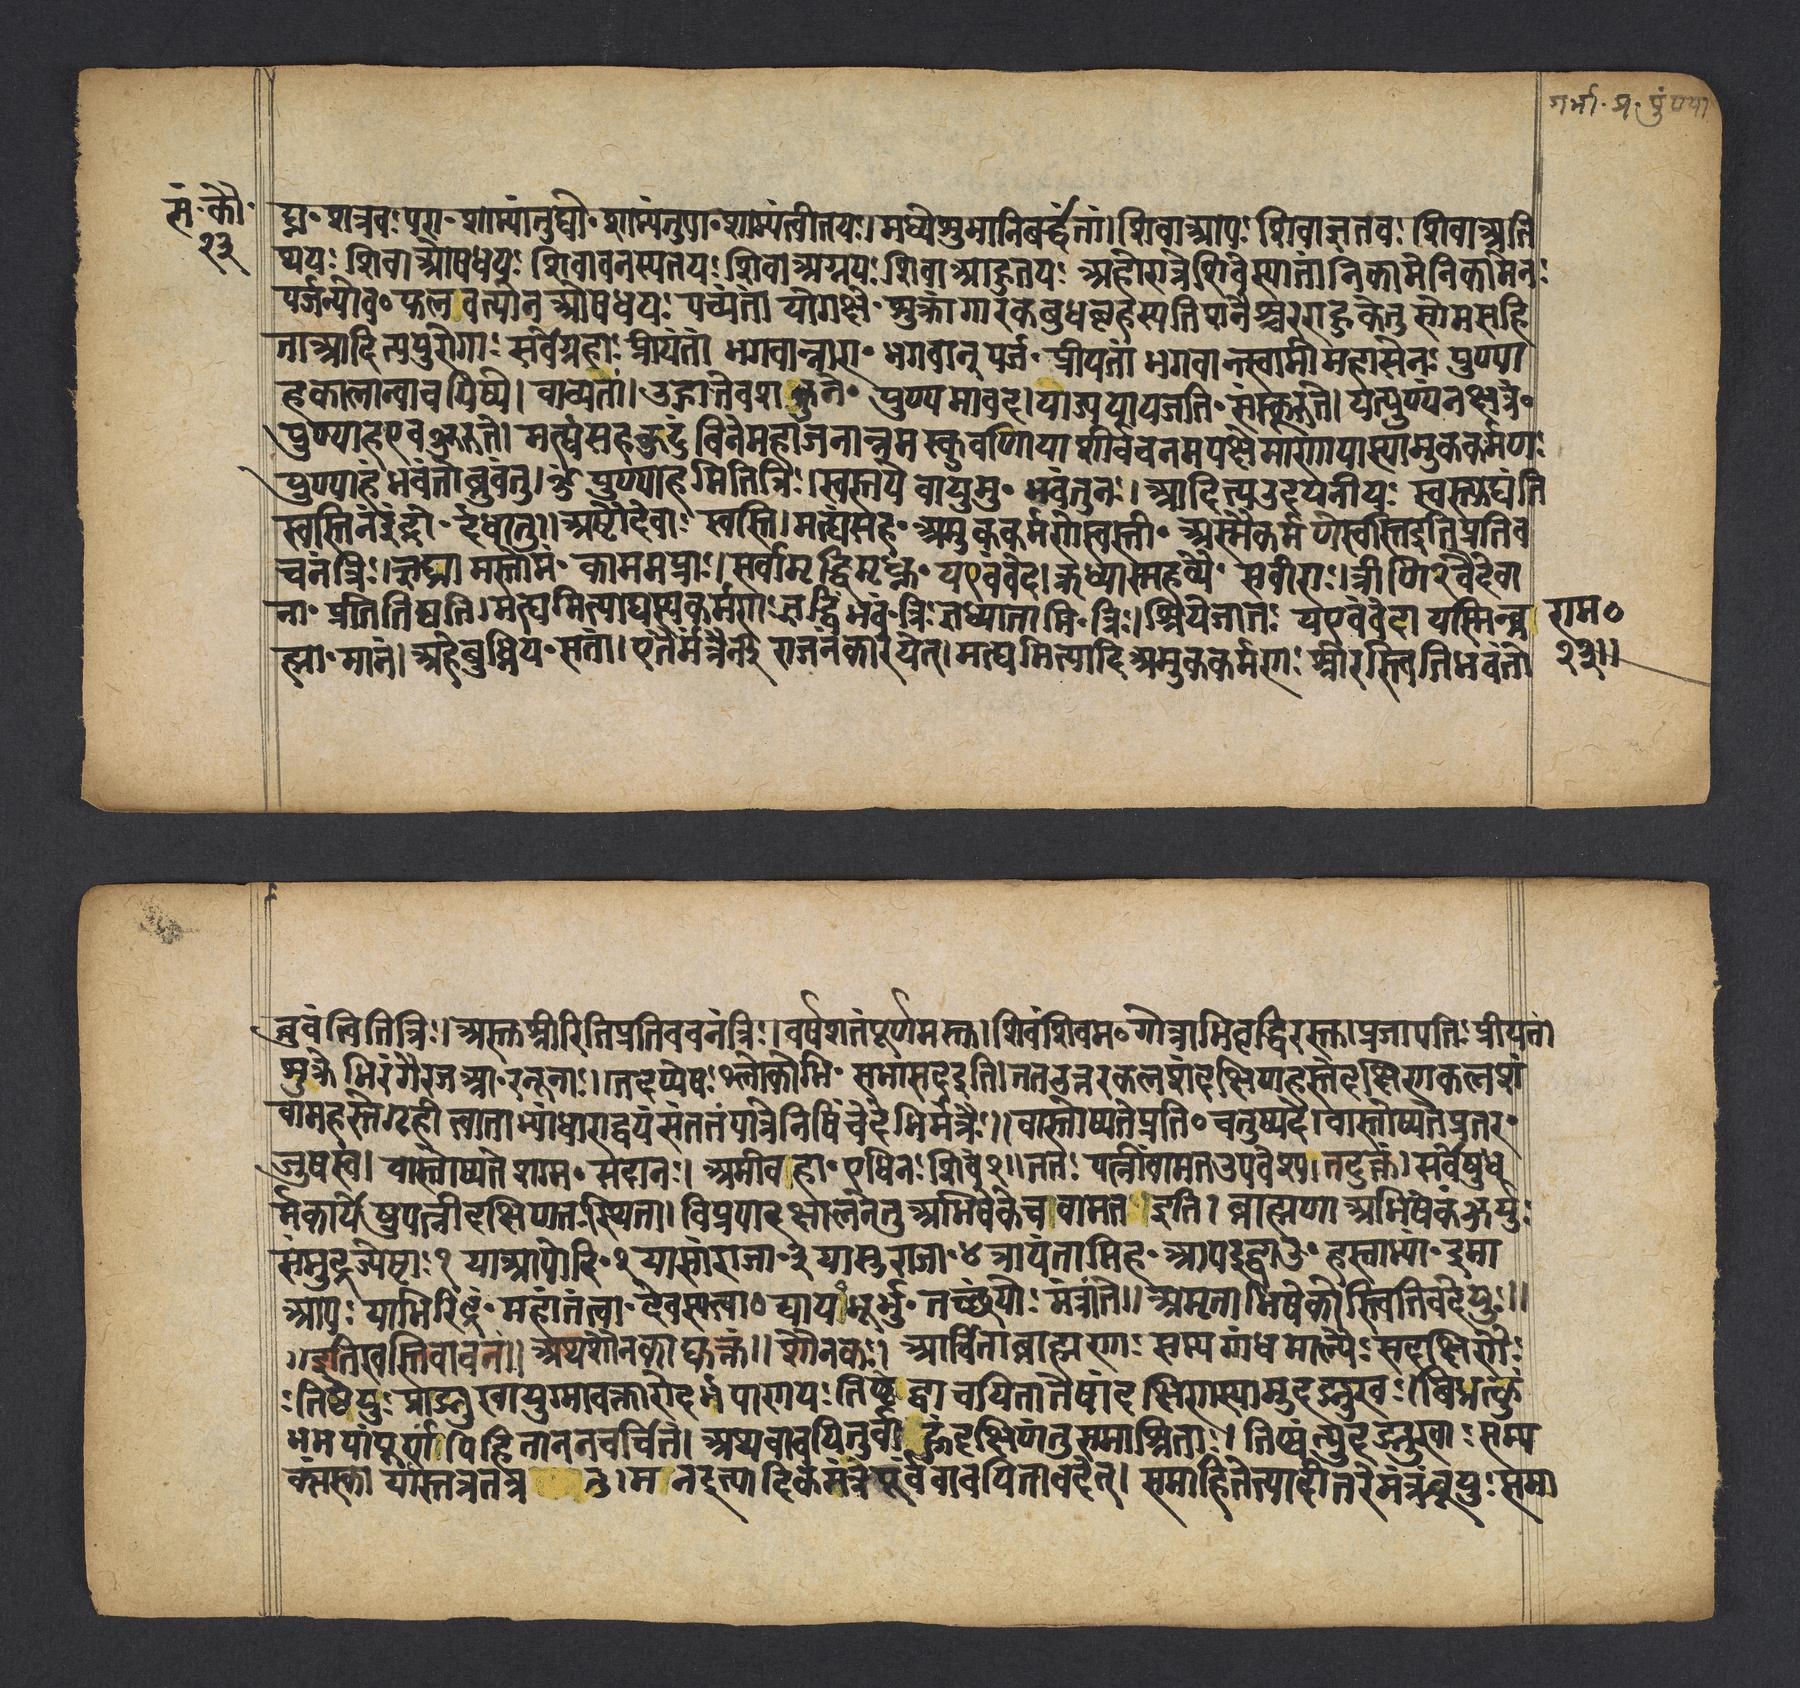 गर्भा॰ प्र॰ पुंण्या
सं॰ कौ॰
२३
घ्न॰ शत्रवः परा॰ शाम्यंतुघो॰ शाम्यंतुपा॰ शाम्यंत्वीतयः। मध्येशुभानिवर्द्धंतां। शिवाआपः शिवाऋतवः शिवाअति
थयः शिवाओषधयः शिवावनस्पतयः शिवाअग्नयः शिवाआहुतयः अहोरात्रेशिवेस्यातां निकामेनिकामेनः
पर्जन्योव॰ फलवत्योनओषधयः पच्यंतां योगक्षे॰ शुक्रांगारकबुधबृहस्पतिशनैश्चरराहुकेतुसोमसहि
ताआदित्यपुरोगाः सर्वेग्रहाः प्रीयंतां भगवान्नारा॰ भगवान् पर्ज॰ प्रीयतां भगवान्स्वामी महासेनः पुण्या
हकालान्वाचयिष्ये। वाच्यतां। उद्गातेवशकुने॰ पुण्यमावद। याज्ययायजति॰ संस्कुरुते। यत्पुण्यंनक्षत्रं॰
पुण्याहएवकुरुते। मत्द्यंसहकुटुंबिनेमहाजनान्नमस्कुर्वाणायाशीर्वचनमपेक्षमाणायास्यामुककर्मणः
पुण्याहं भवंतोब्रुवंतु। ॐ पुण्याहमितित्रिः। स्वस्तये वायुमु॰ भवंतुनः। आदित्यउदयनीयः स्वस्त्युद्यंति
स्वस्तिनइंद्रो॰ र्दधातु। अष्टौदेवाः स्वस्ति। मत्द्यंसह॰ अमुककर्मणेस्वस्ती॰ अस्मैकर्मणेस्वस्तिइतिप्रतिव
चनंत्रिः। ऋध्यामस्तोमं॰ काममप्राः। सर्वामृद्धिमृध्नु॰ यएवंवेद। ऋध्यास्महव्यै॰ सवीराः। त्रीणि२वैदेवा
ना॰ प्रतितिष्ठति। मत्द्यमित्याद्यस्यकर्मणः ऋद्धिं भवं॰ त्रिः ऋध्यातामि॰ त्रिः। श्रियेजातः यएवंवेद। यस्मिन्ब्र
राम॰
ह्मा॰ मानं। अहेबुध्निय॰ सतां। एतैर्मंत्रैर्नीराजनंकारयेत्। मत्द्यमित्यादि अमुककर्मणः श्रीरस्त्वितिभवंतो
२३॥
ब्रुवंत्वितित्रिः। अस्तुश्रीरितिप्रतिवचनंत्रिः। वर्षशतंपूर्णमस्तु। शिवंशिवम॰ गोत्राभिवृद्धिरस्तु। प्रजापतिः प्रीयतां
वामहस्तेगृहीत्वाताभ्यांधाराद्वयंसंततंपात्रेनिषिंचेदेभिर्मंत्रैः॥ वास्तोष्पतेप्रति॰ चतुष्पदे। वास्तोष्पतेप्रतर॰
जुषस्व। वास्तोष्पते शग्म॰ सदानः। अमीवहा॰ एधिनः शिवं२॥ ततः पत्नींवामतउपवेश्य। तदुक्तं। सर्वेषुध
र्मकार्येषुपत्नीदक्षिणतःस्थिता। विप्रपादक्षालनेतु अभिषेकेचवामतः इति। ब्राह्मणा अभिषेकंकुर्युः
समुद्रज्येष्ठाः१ याआपोदि॰ २ यासांराजा॰ ३ यासुराजा॰ ४ त्रायंतामिह॰ आपइद्वाउ॰ हस्ताभ्यां॰ इमा
आपः याभिरिंद्रं॰ महांतंत्वा॰ देवस्यत्वा॰ भूर्भु॰ तच्छंयोः मंत्रांते॥ अमृताभिषेकोस्त्वितिवदेयुः॥
॥इतिस्वस्तिवाचनं॥ अथशौनकाद्युक्तं॥ शौनकः। आर्चिताब्राह्मणाः सम्यग्गंधमाल्यैः सदक्षिणैः
तिष्ठेयुः प्राङ्मुखायुग्मावक्तारोदर्भपाणयः तिष्ठेद्वाचयितातेषांदक्षिणस्यामुदङ्मुखः। बिभ्रत्कुं
भमपांपूर्णंपिहिताननचर्चितं। अथवाचयितुर्वा दक्षिणंतुसमाश्रिताः। तिष्ठंत्युदङ्मुखाः सम्य
समाहितेत्यादीतरेमंत्रंब्रूयुः समा